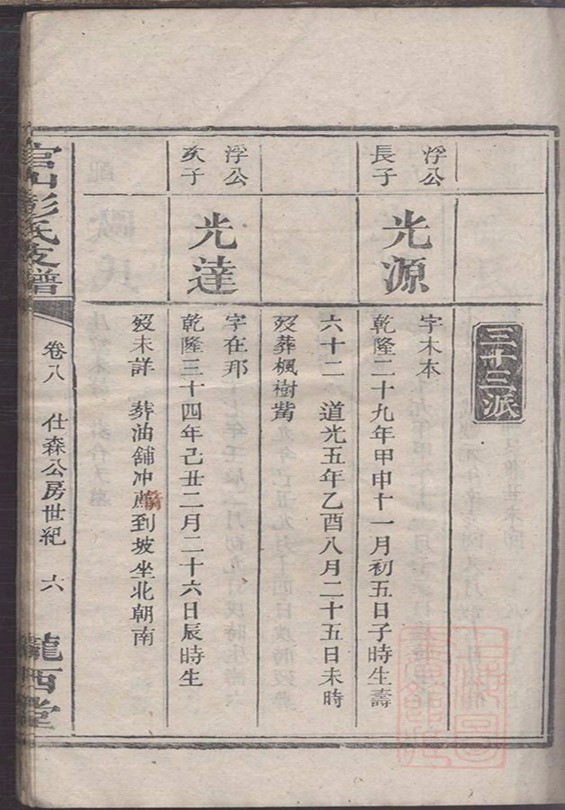 三十三派
浮公
長子
光源
字木本
乾隆二十九年甲申十一月初五日子時生壽
六十二 道光五年乙酉八月二十五日未時
歿葬楓樹觜
浮公
次子
光達
字在邦
乾隆三十四年己丑二月二十六日辰時生
歿未詳 葬油舖冲 到坡坐北朝南
官山彭氏支譜
卷八 仕森公房世紀 六
隴西堂